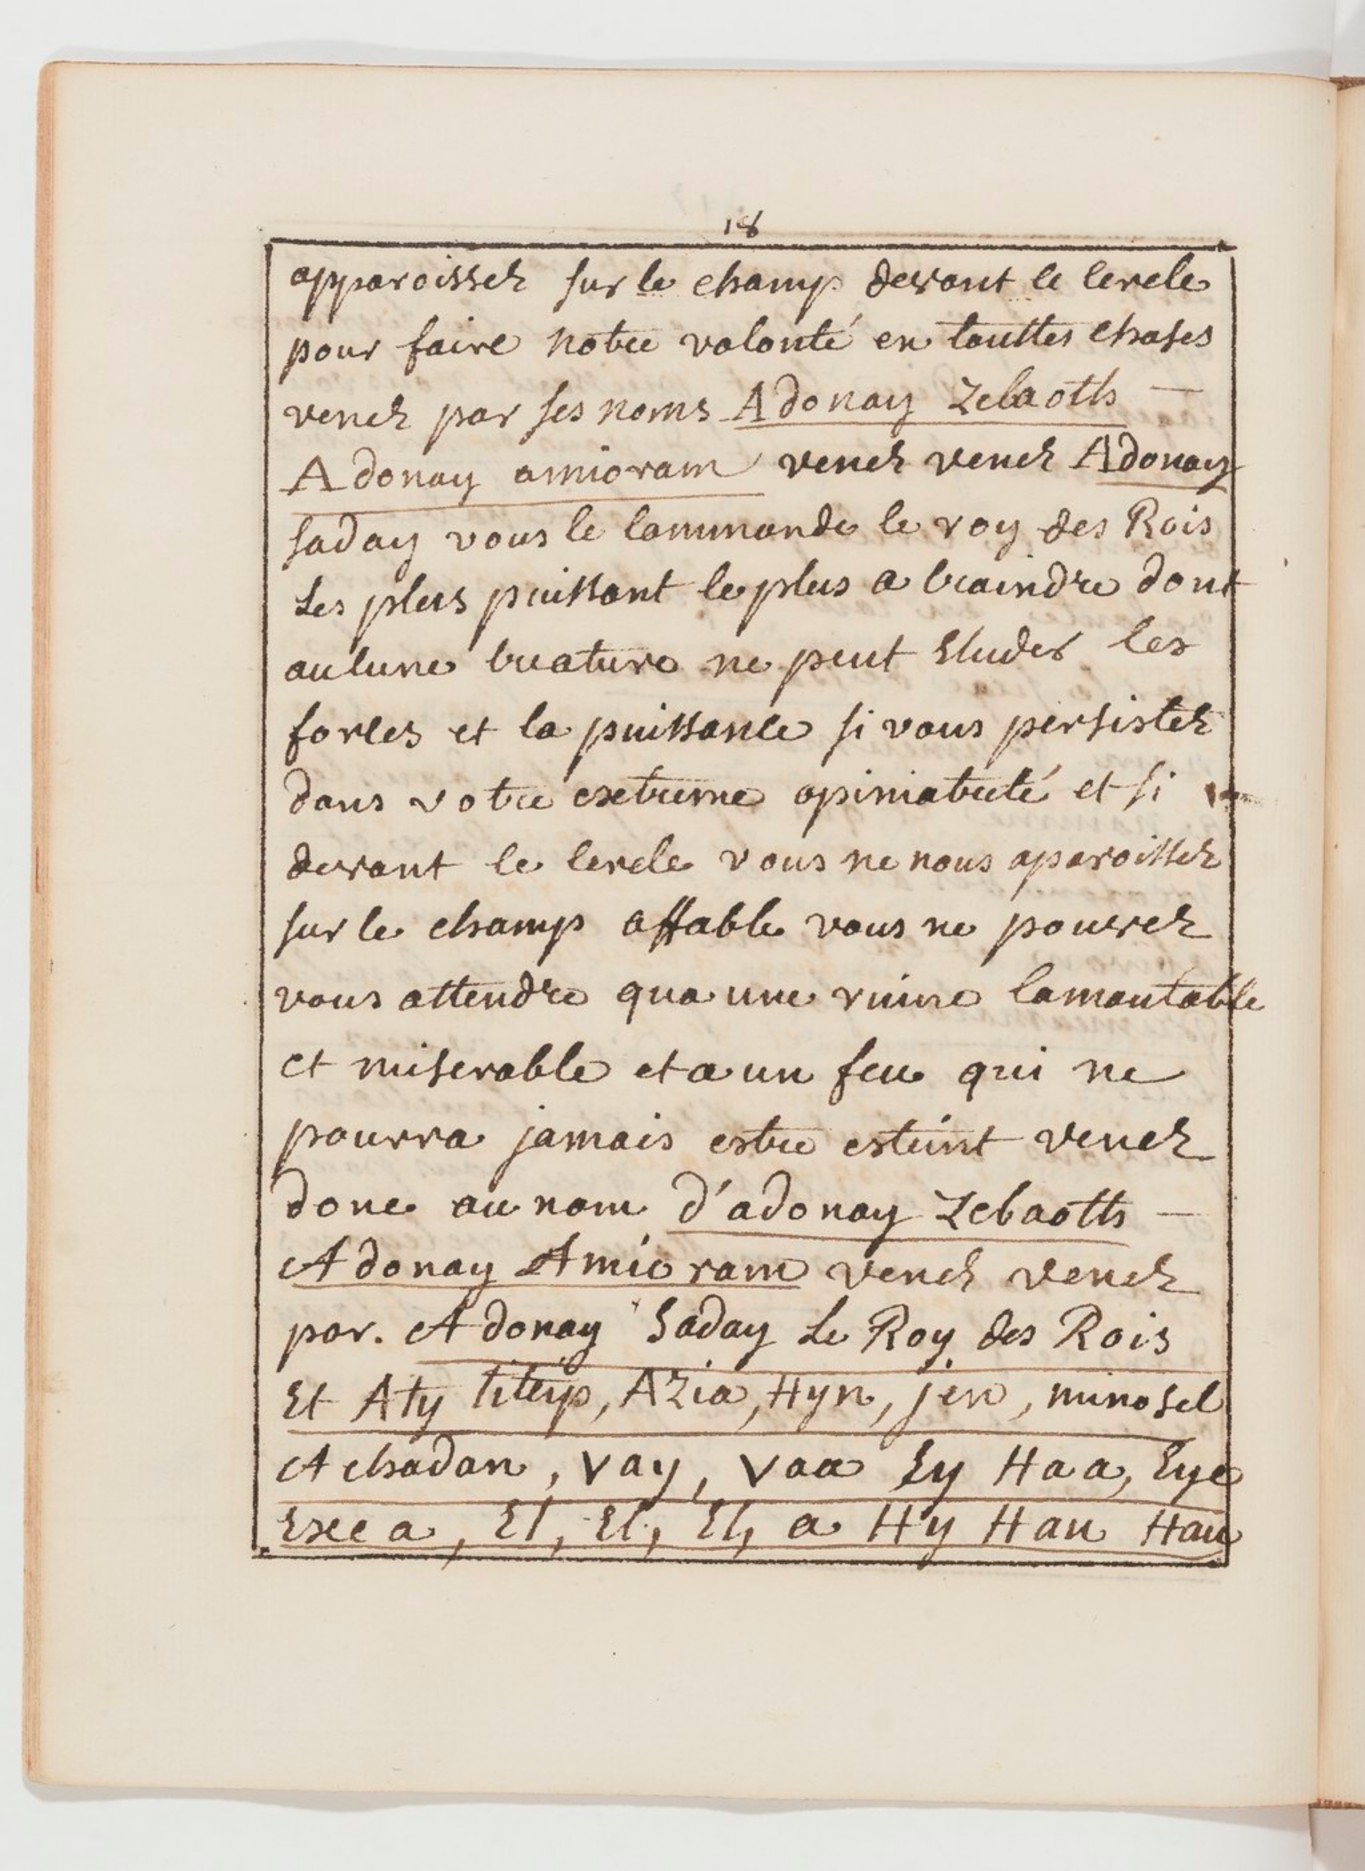 18
apparoissez sur le champ devant le cercle
pour faire notre volonté en touttes choses
venez par ses noms Adonay Zebaoth
Adonay amioram venez venez Adonay
saday vous le commande le roy des Rois
Les plus puissant le plus a craindre dont
aucune creature ne peut Eluder les
forces et la puissance si vous persistez
dans votre extreme opiniatreté et si
devant le cercle vous ne nous aparoissez
sur le champ affable vous ne pouvez
vous attendre qua une ruine lamantable
et miserable et a un feu qui ne
pourra jamais estre esteint venez
donc au nom d'adonay Zebaoth
Adonay Amioram venez venez
par. Adonay Saday Le Roy des Rois
Et Aty titeyp, AZia, Hyn, jen, minosel
Achadan, vay, vaa Ey Haa, Eye
Exe a, El, El, El, a Hy Hau Hau